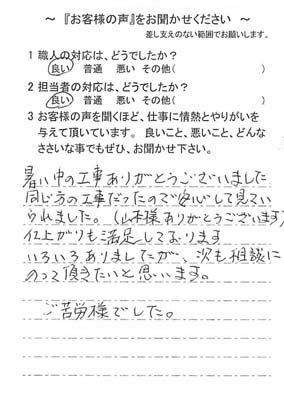 ～『お客様の声』をお聞かせください ～
差し支えのない範囲でお願いします。
1 職人の対応は、どうでしたか？
良い 普通 悪い その他( )
2 担当者の対応は、どうでしたか？
良い 普通 悪い その他( )
3 お客様の声を聞くほど、仕事に情熱とやりがいを
与えて頂いています。 良いこと、悪いこと、どんな
ささいな事でもぜひ、お聞かせ下さい。
暑い中の工事ありがとうございました
同じ方の工事だったので安心して見てい
られました。(山本様ありがとうございます)
仕上がりも満足しております
いろいろありましたが、次も相談に
のって頂きたいと思います。
ご苦労様でした。